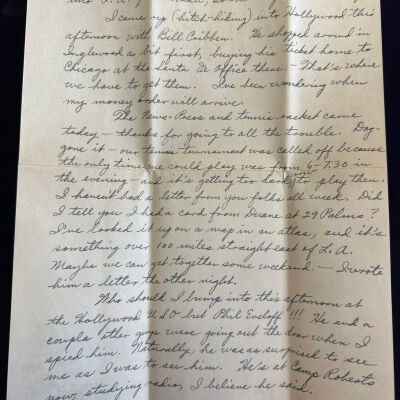 into L.A.
I came up (hitch-hiking) into Hollywood this
afternoon with Bill Cribben. We shopped around in
Inglewood a bit first, buying his ticket home to
Chicago at the Santa Fe Office there. – That's where
we have to get them. I've been wondering when
my money order will arrive.
The News-Press and tennis racket came
today – thanks for going to all the trouble. Dog-
gone it – our tennis tournament was called off because
the only time we could play was from 6-7:30 in
the evening – and it's getting too dark to play then.
I haven't had a letter from you folks all week. Did
I tell you I had a card from Duane at 29 Palms?
I've looked it up on a map in an atlas, and it's
something over 100 miles straight east of L.A.
Maybe we can get together some weekend. – I wrote
him a letter the other night.
Who should I bump into this afternoon at
the Hollywood USO but Phil Eveloff!!! He and a
coupla other guys were going out the door when I
spied him. Naturally, he was as surprised to see
me as I was to see him. He's at Camp Roberts
now, studying radio, I believe he said.